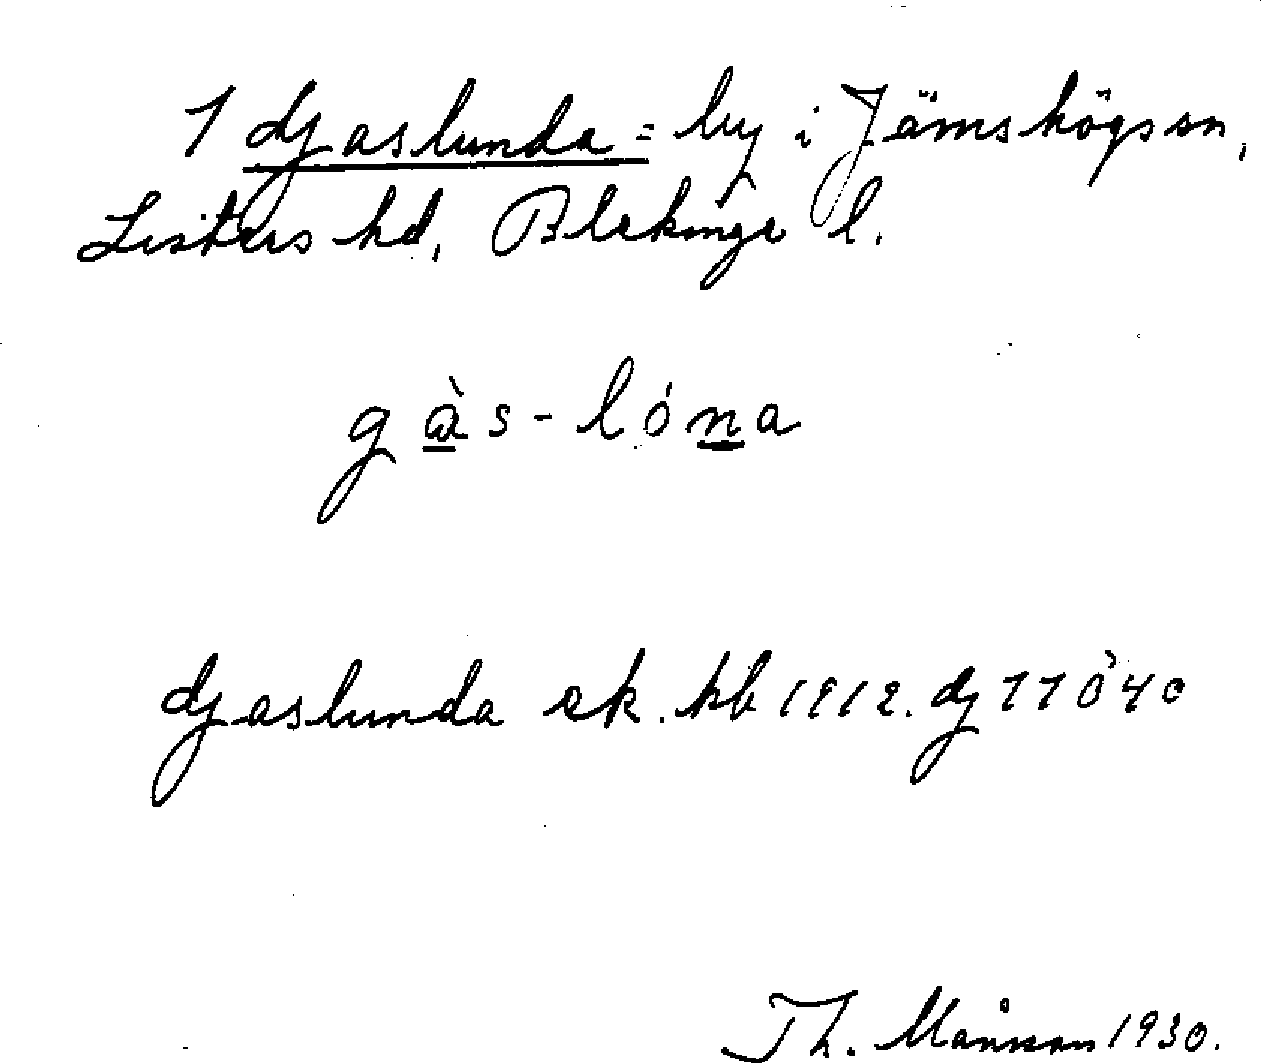 1 Gaslunda = by i Jämshögs sn,
Listers hd, Blekinge l.
gàs-lóna
Gaslunda ek. kb 1912. G 11 ö 40
Th. Månsson 1930.